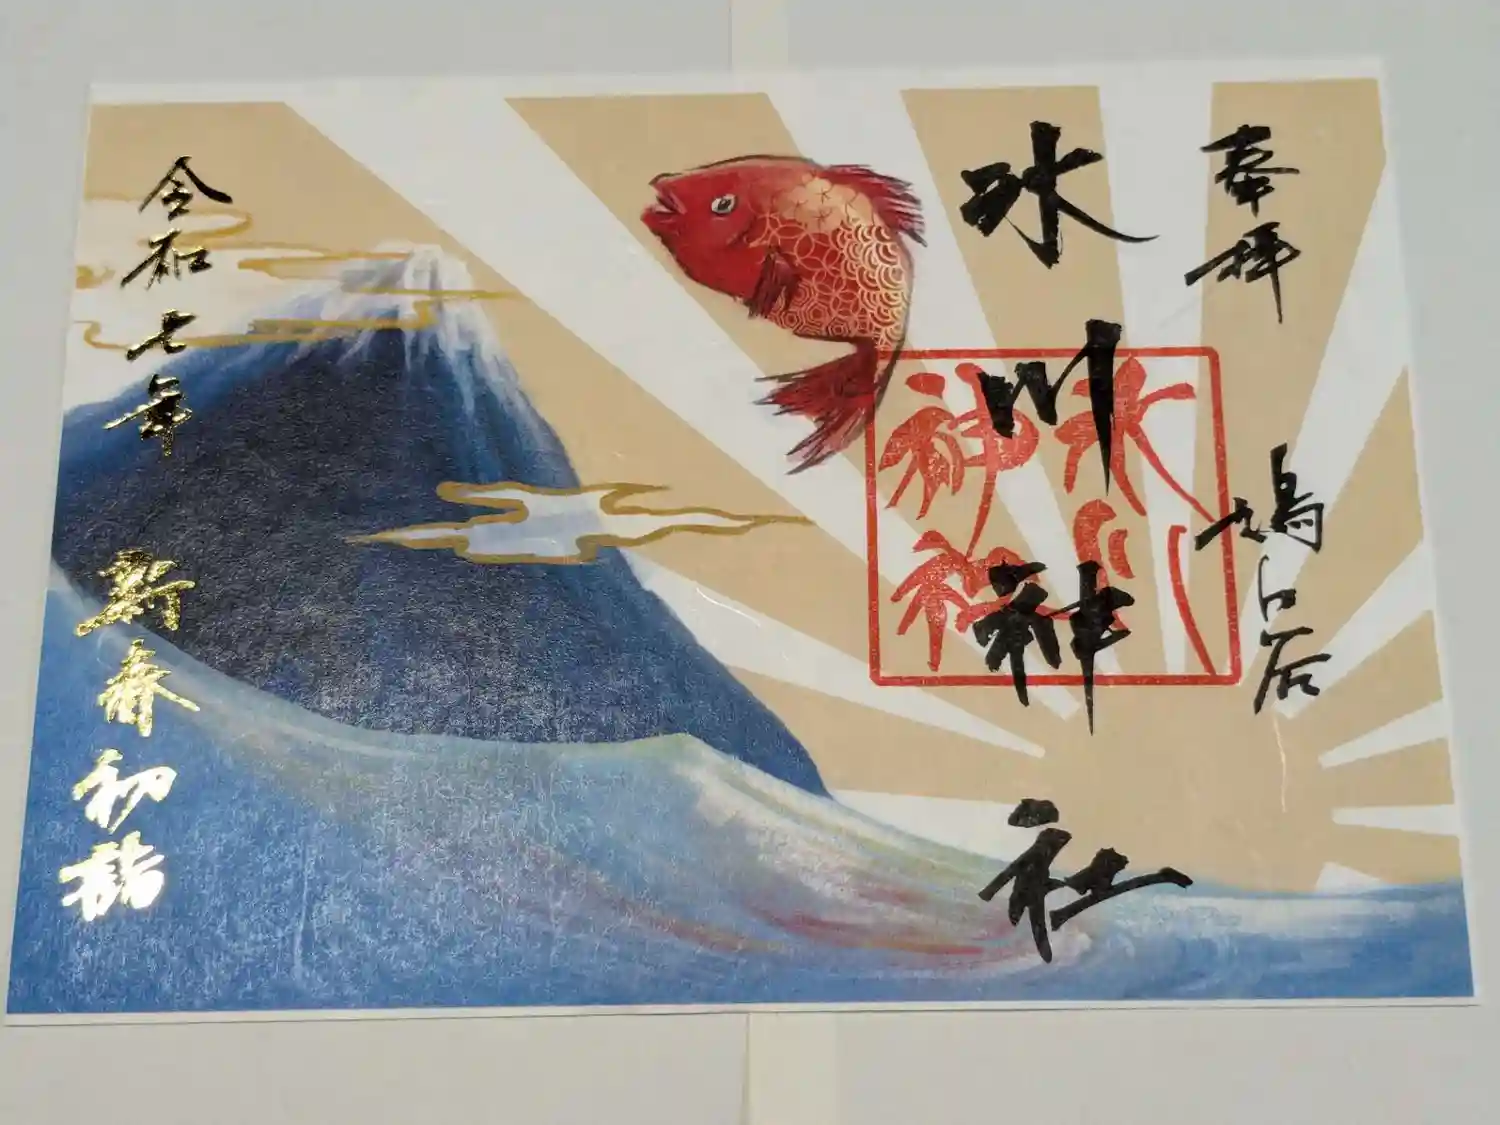 奉拝
鳩ヶ谷
氷川神社
氷川
神社
令和七年 新春初詣